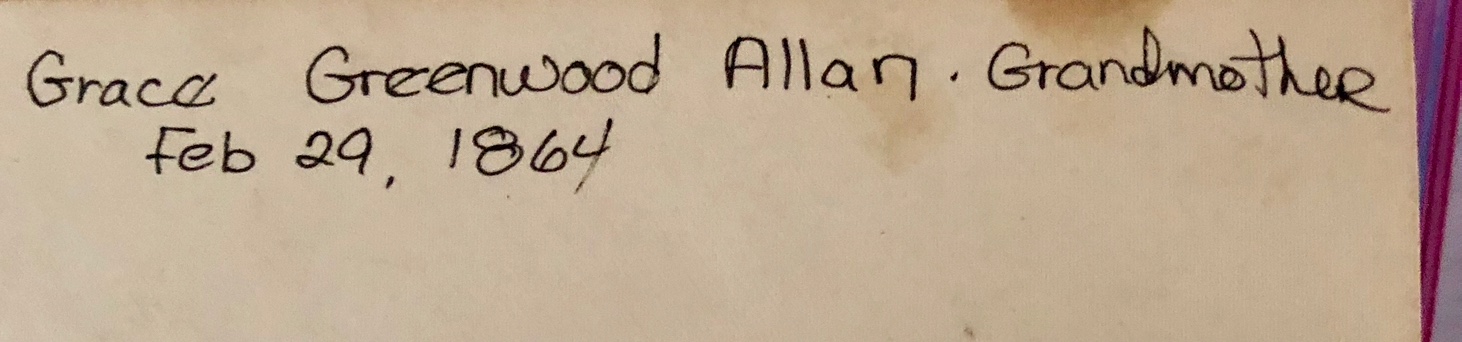 Grace Greenwood Allan. Grandmother
Feb 29, 1864